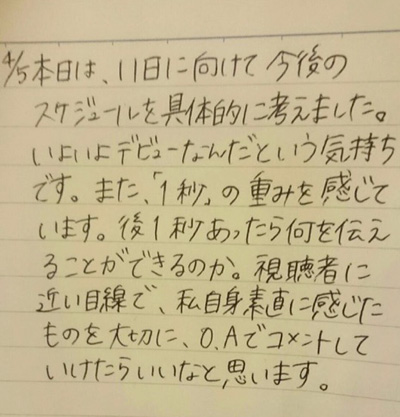 4/5本日は、11日に向けて今後の
スケジュールを具体的に考えました。
いよいよデビューなんだという気持ち
です。また、「1秒」の重みを感じて
います。後1秒あったら何を伝え
ることができるのか。視聴者に
近い目線で、私自身素直に感じた
ものを大切に、O.Aでコメントして
いけたらいいなと思います。